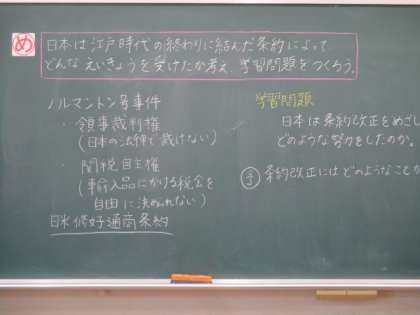 め
日本は江戸時代の終わりに結んだ条約によって
どんなえいきょうを受けたか考え、学習問題をつくろう。
ノルマントン号事件
・領事裁判権
(日本の法律で裁けない)
・関税自主権
(輸入品にかける税金を
自由に決められない)
日米修好通商条約
学習問題
日本は条約改正をめざし
どのような努力をしたのか。
予 条約改正にはどのようなことが